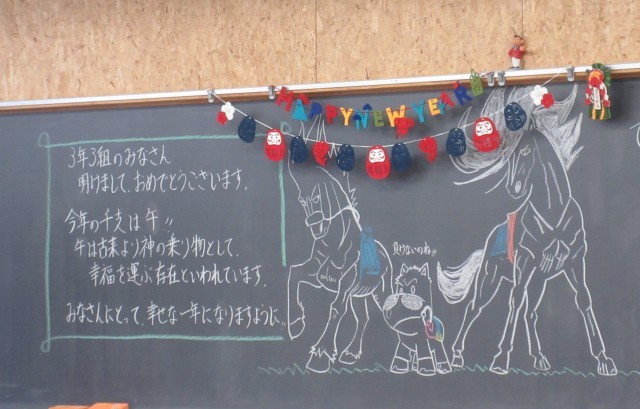 HAPPY NEW YEAR
3年3組のみなさん
明けまして、おめでとうございます。
今年の干支は午〃
午は古来より神の乗り物として、
幸福を運ぶ存在といわれています。
みなさんにとって、幸せな一年になりますように〃
負けないのね〃